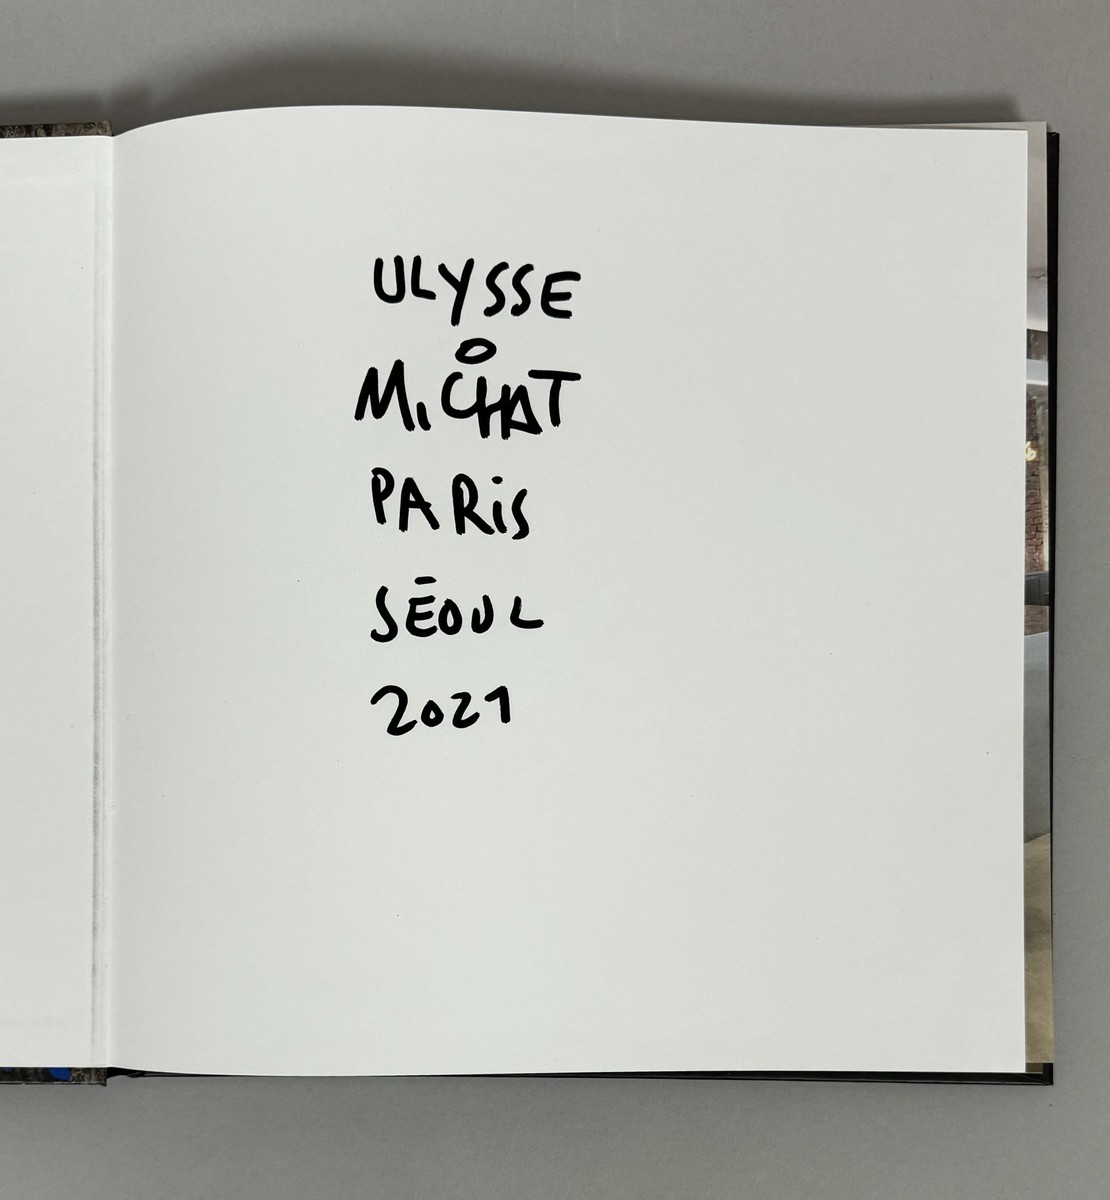 ULYSSE
M. CHAT
PARIS
SÉOUL
2021